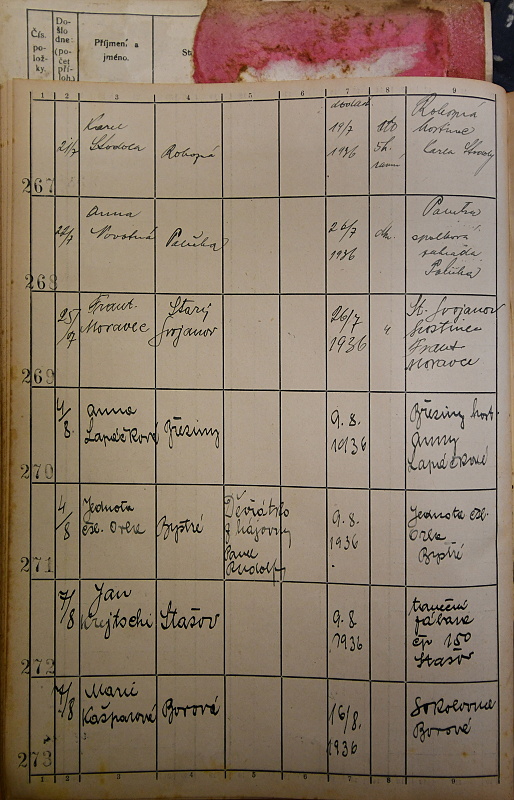 Čís.
po-
lož-
ky.
Do-
šlo
dne:
(po-
čet
pří-
loh.)
Příjmení a
jméno.
1 2 3 4 5 6 7 8 9
267
21/7
Karel
Stodola
Rohozná
dodat.
19/7
1936
Rohozná
hostinec
Karla Stodoly
268
22/7
Anna
Novotná
Polička
26/7
1936
spolková
zahrada
Polička
269
25/7
Frant.
Moravec
Starý
Svojanov
26/7
1936
"
St. Svojanov
hostinec
Frant.
Moravec
270
4/8
Anna
Lapáčková
Březiny
9.8.
1936
Březiny host.
Anny
Lapáčkové
271
4/8
Jednota
čsl. Orla
Bystré
Děvčátko
z hájovny
Pavel
Rudolf
9.8.
1936
Jednota čsl.
Orla
Bystré
272
7/8
Jan
Krejtschi
Stašov
9.8
1936
taneční
zábava
čp 150
Stašov
273
7/8
Marie
Kašparová
Borová
16/8.
1936
Sokolovna
Borová
1 2 3 4 5 6 7 8 9